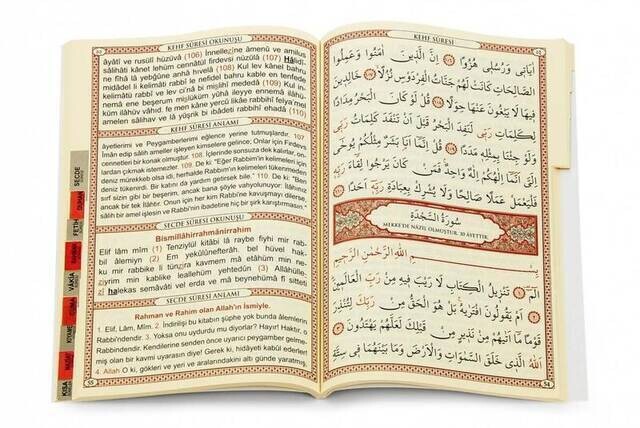 KEHF SÛRESİ OKUNUŞU
âyâtî ve rusulî hüzüvâ (106) İnnellezîne âmenû ve amilus
sâlihâti kânet lehüm cennâtül firdevsi nüzülâ (107) Hâlidî-
ne fîhâ lâ yebğûne anhâ hıvelâ (108) Kul lev kânel bahru
midâdel li kelimâti rabbî le nefidel bahru kable en tenfede
kelimâtü rabbî ve lev ci'nâ bi mislihî mededâ (109) Kul in-
nemâ ene beşerum mislüküm yûhâ ileyye ennemâ ilâhü-
küm ilâhüv vâhid. fe men kâne yercû likâe rabbihî felya'mel
amelen sâlihav ve lâ yüşrik bi ıbâdeti rabbihî ehadâ (110)
KEHF SÛRESİ ANLAMI
âyetlerimi ve Peygamberlerimi eğlence yerine tutmuşlardır. 107.
İman edip sâlih ameller işleyen kimselere gelince; Onlar için Firdevs
cennetleri bir konak olmuştur. 108. İçlerinde sonsuza dek kalırlar, on-
lardan çıkmak istemezler. 109. De ki: "Eğer Rabbim'in kelimeleri için
deniz mürekkeb olsa idi, herhalde Rabbim'in kelimeleri tükenmeden
deniz tükenirdi. Bir katını da yardım getirsek bile." 110. De ki: "Ben
sırf sizin gibi bir beşerim, ancak bana şöyle vahyolunuyor: İlâhınız
ancak bir tek İlâhtır. Onun için her kim Rabbi'ne kavuşmayı dilerse,
sâlih bir amel işlesin ve Rabbi'nin ibadetine hiç bir şirk karıştırmasın."
SECDE SÛRESİ OKUNUŞU
Bismillâhirrahmânirrahîm
Elif lâm mîm (1) Tenziylül kitâbi lâ raybe fîyhi mir rab-
bil âlemiyn (2) Em yekûlûnefterâh. bel hüvel hak-
ku mir rabbike li tünzira kavmem mâ etâhüm min ne-
ziyrim min kablike leallehüm yehtedûn (3) Allâhülle-
zî halekas semâvâti vel erda ve mâ beynehümâ fî sitteti
SECDE SÛRESİ ANLAMI
Rahman ve Rahim olan Allah'ın İsmiyle.
1. Elif, Lâm, Mîm. 2. İndirilişi bu kitabın şüphe yok bunda âlemlerin
Rabbi'ndendir. 3. Yoksa onu uydurdu mu diyorlar? Hayır! Haktır, o
Rabbindendir. Kendilerine senden önce uyarıcı peygamber gelme-
miş olan bir kavmi uyarasın diye! Gerek ki, hidâyeti kabûl ederler!
4. Allah O ki, gökleri ve yeri ve aralarındakini altı günde yaratmış,
55
SECDE
DUHAN
FETİH
VÂKIA
CUMA
KIYAME
KISA
KEHF SÛRESİ
اٰيَاتِي وَرُسُلِي هُزُوًا ﴿١٠٦﴾ اِنَّ الَّذِينَ اٰمَنُوا وَعَمِلُوا
الصَّالِحَاتِ كَانَتْ لَهُمْ جَنَّاتُ الْفِرْدَوْسِ نُزُلًا ﴿١٠٧﴾ خَالِدِينَ
فِيهَا لَا يَبْغُونَ عَنْهَا حِوَلًا ﴿١٠٨﴾ قُلْ لَوْ كَانَ الْبَحْرُ مِدَادًا
لِكَلِمَاتِ رَبِّي لَنَفِدَ الْبَحْرُ قَبْلَ اَنْ تَنْفَدَ كَلِمَاتُ رَبِّي
وَلَوْ جِئْنَا بِمِثْلِهِ مَدَدًا ﴿١٠٩﴾ قُلْ اِنَّمَا اَنَا بَشَرٌ مِثْلُكُمْ يُوحٰى
اِلَيَّ اَنَّمَا اِلٰهُكُمْ اِلٰهٌ وَاحِدٌ فَمَنْ كَانَ يَرْجُوا لِقَاءَ رَبِّهِ
فَلْيَعْمَلْ عَمَلًا صَالِحًا وَلَا يُشْرِكْ بِعِبَادَةِ رَبِّهِ اَحَدًا ﴿١١٠﴾
سُورَةُ السَّجْدَةِ
MEKKE'DE NÂZİL OLMUŞTUR. 30 ÂYETTİR.
بِسْمِ اللّٰهِ الرَّحْمٰنِ الرَّحِيمِ
الٓمٓ ﴿١﴾ تَنْزِيلُ الْكِتَابِ لَا رَيْبَ فِيهِ مِنْ رَبِّ الْعَالَمِينَ ﴿٢﴾
اَمْ يَقُولُونَ افْتَرٰيهُ بَلْ هُوَ الْحَقُّ مِنْ رَبِّكَ لِتُنْذِرَ
قَوْمًا مَا اَتٰيهُمْ مِنْ نَذِيرٍ مِنْ قَبْلِكَ لَعَلَّهُمْ يَهْتَدُونَ ﴿٣﴾
اَللّٰهُ الَّذِي خَلَقَ السَّمٰوَاتِ وَالْاَرْضَ وَمَا بَيْنَهُمَا فِي سِتَّةِ
54